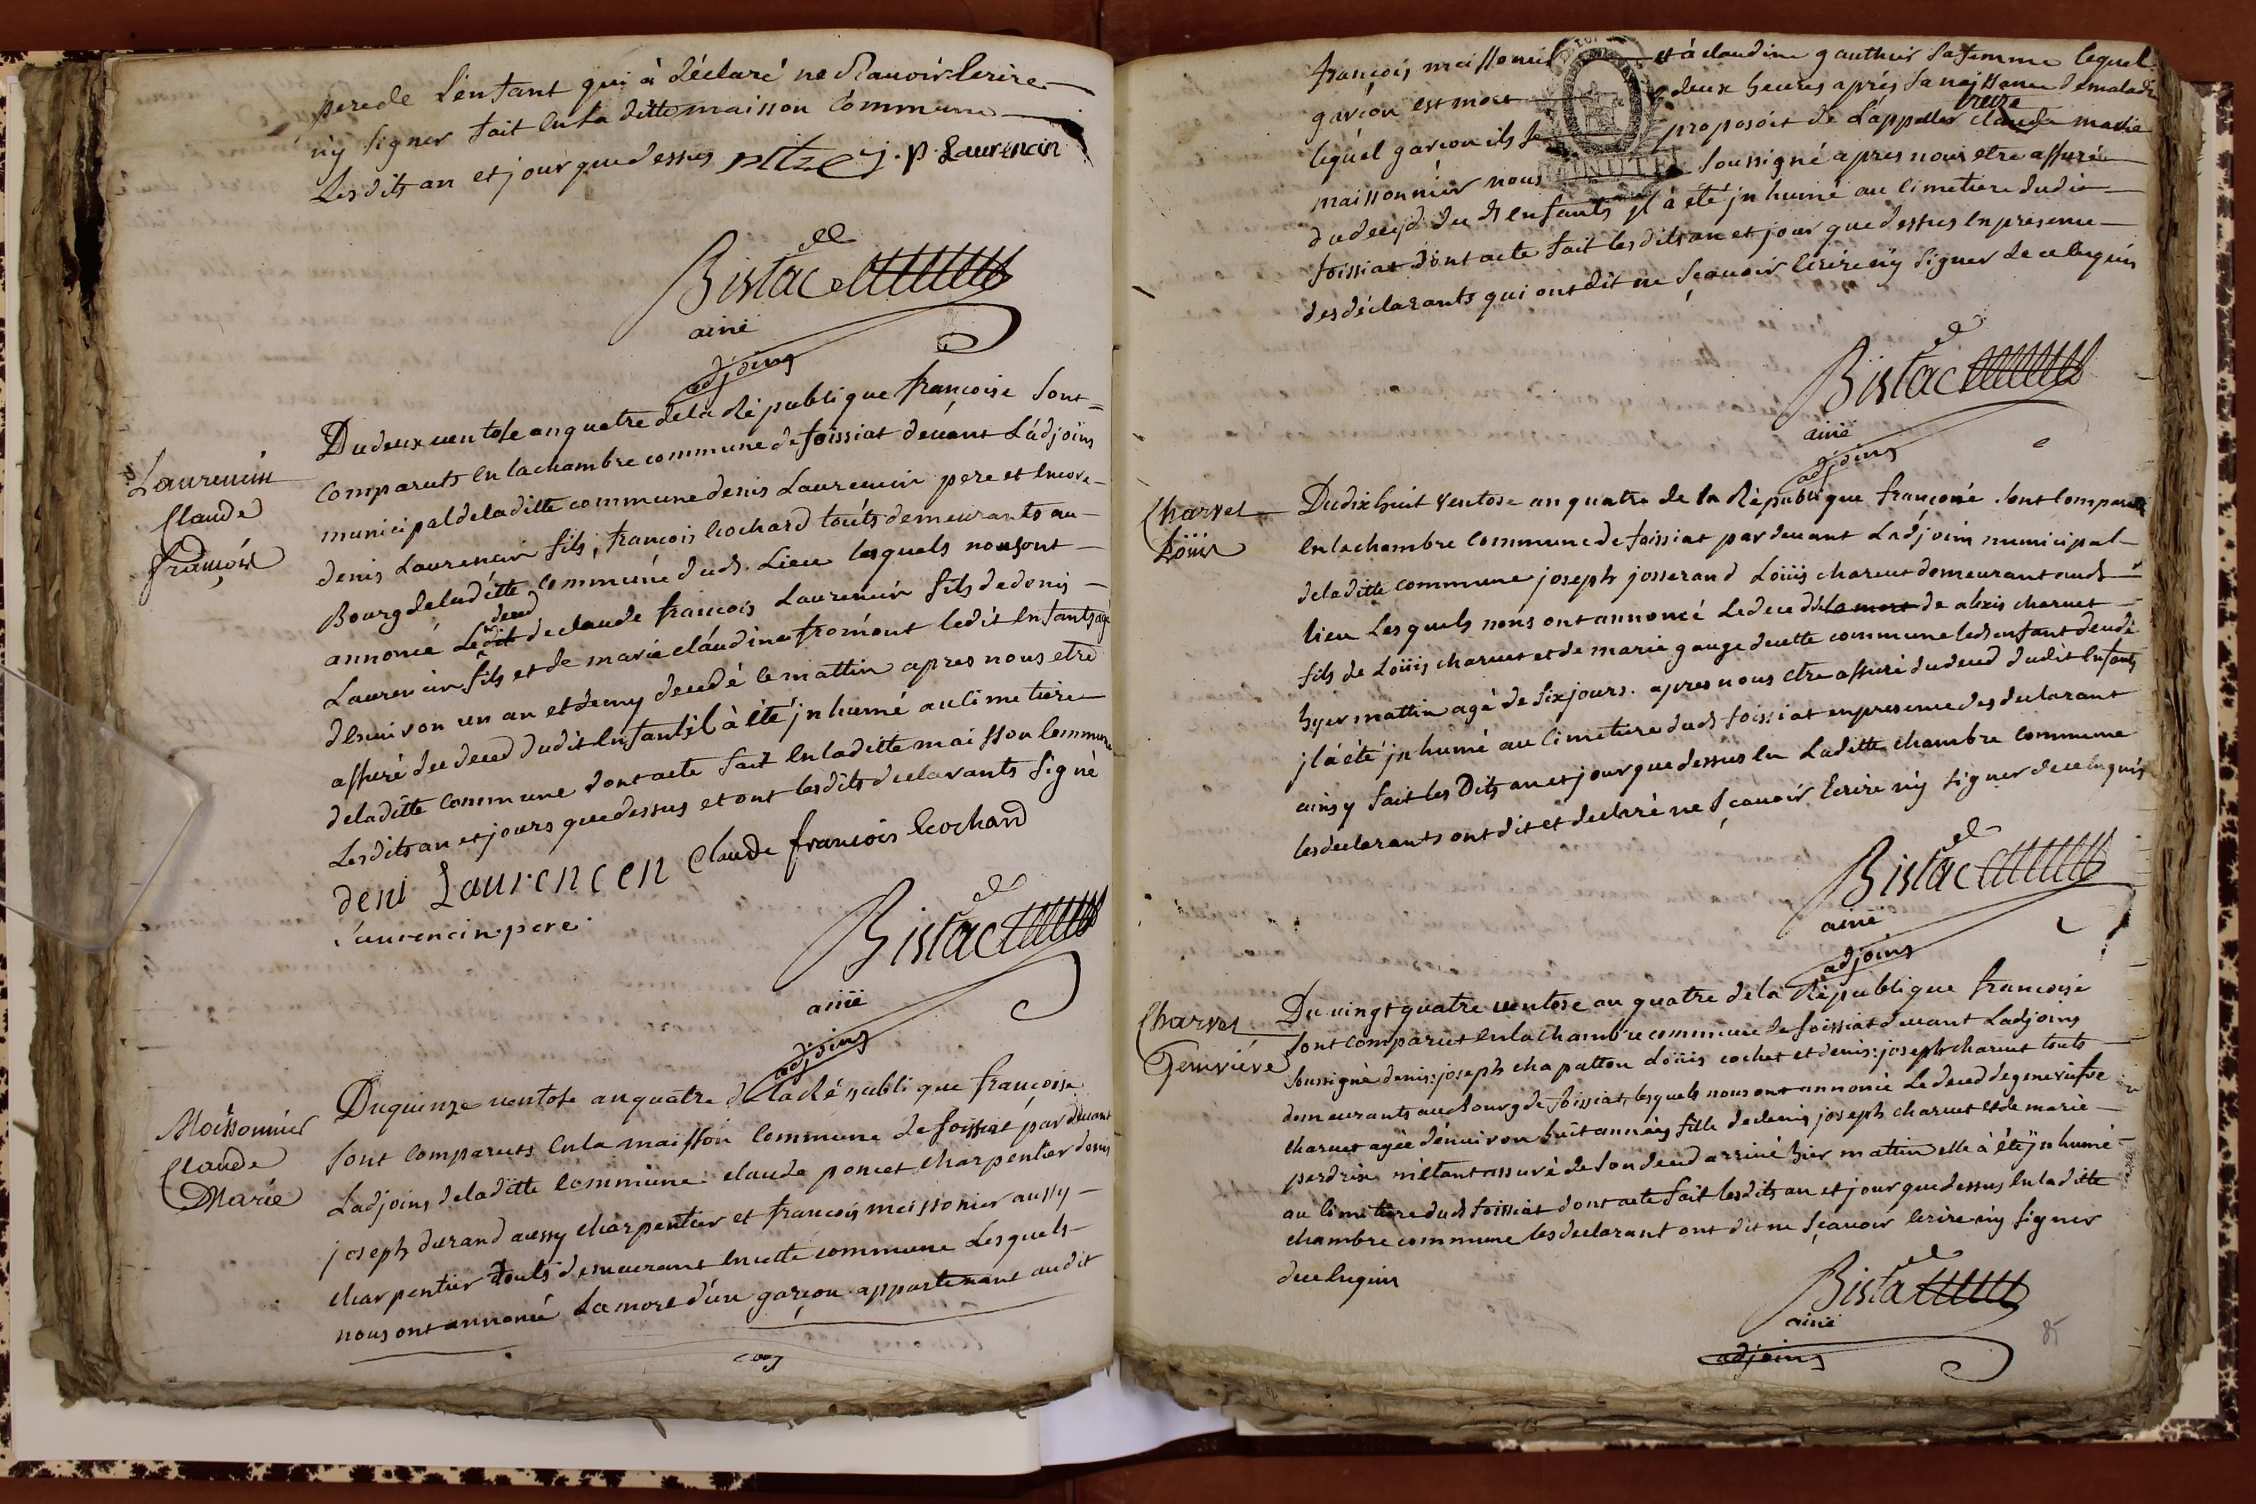 pere de L'enfant qui à déclaré ne sçauoir Ecrire
n'y signer fait en la ditte maisson Commune
Lesdits an et jour que dessus j. p. Laurencin
Bistac
ainé
adjoins
Laurencin
Claude
françois
Du deux uentose an quatre de la République françoise Sont
Comparuts en la chambre commune de foissiat deuant L'adjoins
municipal de la ditte commune denis Laurencin pere et encore
denis Laurencin fils, françois Cochard touts demeurants au
Bourg de la ditte commune dud. Lieu lesquels nous ont
annoncé Le deced de claude francois Laurencin fils de denis
Laurencin fils et de marie claudine fromont ledit enfants agé
denuiron un an et demy decedé le mattin apres nous etre
assuré du deced dudit enfants il à été jnhumé au cimetiere
de la ditte commune dont acte fait en la ditte maisson Commune
Lesdits an et jours que dessus et ont lesdits declarants signé
deni Laurencen Claude francois Cochard
Laurencin pere
Bistac
ainé
adjoins
Moissonnier
Claude
Marie
Du quinze uentose an quatre de la République françoise
sont comparuts en la maisson commune de foissiat par deuant
Ladjoins de la ditte commune claude poncet charpentier denis
joseph durand aussy charpentier et francois meissonier aussy
charpentier touts demeurant en cette commune Lesquels
nous ont annoncé La mort d'un garçon appartenant audit
françois meissonier et à claudine gauthier sa femme lequel
garçon est mort deux heures après sa naissance de maladie
lequel garçon ils se proposoit de L'appeller claude marie
maissonnier nous soussigné apres nous etre assuré
du deced du d enfants il à été jnhumé au cimetiere dudit
foissiat dont acte fait lesdits an et jour que dessus en presence
des déclarants qui ont dit ne sçauoir ecrire n'y signer de ce enquis
Bistac
ainé
adjoins
Charvet
Loüis
Du dix huit ventose an quatre de la République françoise sont Comparu
en la chambre commune de foissiat par deuant Ladjoins municipal
de la ditte commune joseph josserand Loüis charuet demeurant aud
lieu Lesquels nous ont annoncé Le deced de la mort de alexis charuet
fils de Loüis charuet et de marie gauge de cette commune led enfant decedé
hyer mattin agé de six jours. apres nous etre assuré du deced dudit enfants
il à été jnhumé au cimetiere dud foissiat en presence des declarant
ainsy fait les Dits an et jour que dessus en Laditte chambre commune
les declarants ont dit et declaré ne sçauoir Ecrire n'y signer de ce enquis
Bistac
ainé
adjoins
Charvet
Genviéve
Du uingt quatre uentose an quatre de la République francoise
sont comparut en la chambre commune de foissiat deuant Ladjoins
soussigné denis: joseph chapatton Loüis cochet et denis: joseph charuet touts
demeurants au bourg de foissiat, lesquels nous ont annoncé Le deced de geneviefve
charuet agée dénuiron huit années fille de denis joseph charuet et de marie
perdrix m'étant assuré de son deced arriué hier mattin elle à été jnhumé
au cimetiere dud foissiat dont acte fait lesdits an et jour que dessus en la ditte
chambre commune les declarant ont dit ne sçauoir ecrire n'y signer
de ce enquis
Bistac
ainé
adjoins
85